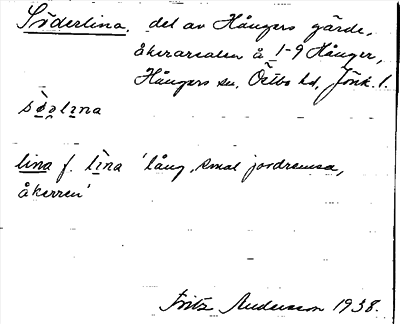 Söderlina, del av Hångers gärde,
åkerarealen å 1-9 Hånger,
Hångers sn, Östbo hd, Jönk. l.
lina f. lìna 'lång, smal jordremsa,
åkerren'
Fritz Andersson 1938.